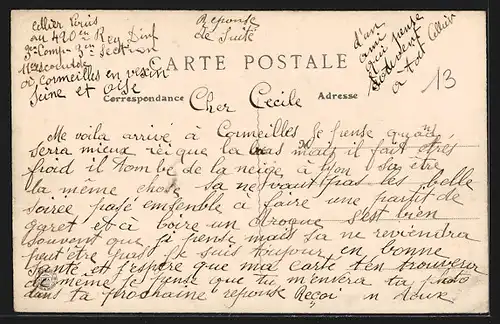 Cellier
au 420em Reg Dinf
3em Comp 3em Section
11er escouade
à Cormeilles en vexin
Seine et Oise
Reponse
de Suite
d'un
ami
qui pense
souvent
a toi
Cellier
13
CARTE POSTALE
Correspondance
Adresse
Cher Cecile
Me voila arrivé à Cormeilles Je pense qu'on
serra mieux ici que la bas mais il fait très
froid il tombe de la neige à Lyon sa être
la même chose sa ne vaut pas les belle
soirée pasé ensemble à faire une partit de
garet et à boire un groque s'est bien
souvent que j'i pense mais sa ne reviendra
peut être pas Je suis toujour en bonne
santé et j'espère que ma carte t'en trouvera
de même Je pense que tu m'envera ta photo
dans ta prochaine reponse Reçoi n doux